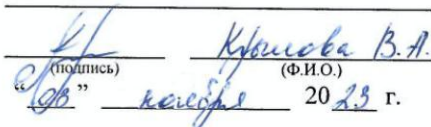 Крылова В.А.
(подпись) (Ф.И.О.)
" " ноября 2023 г.